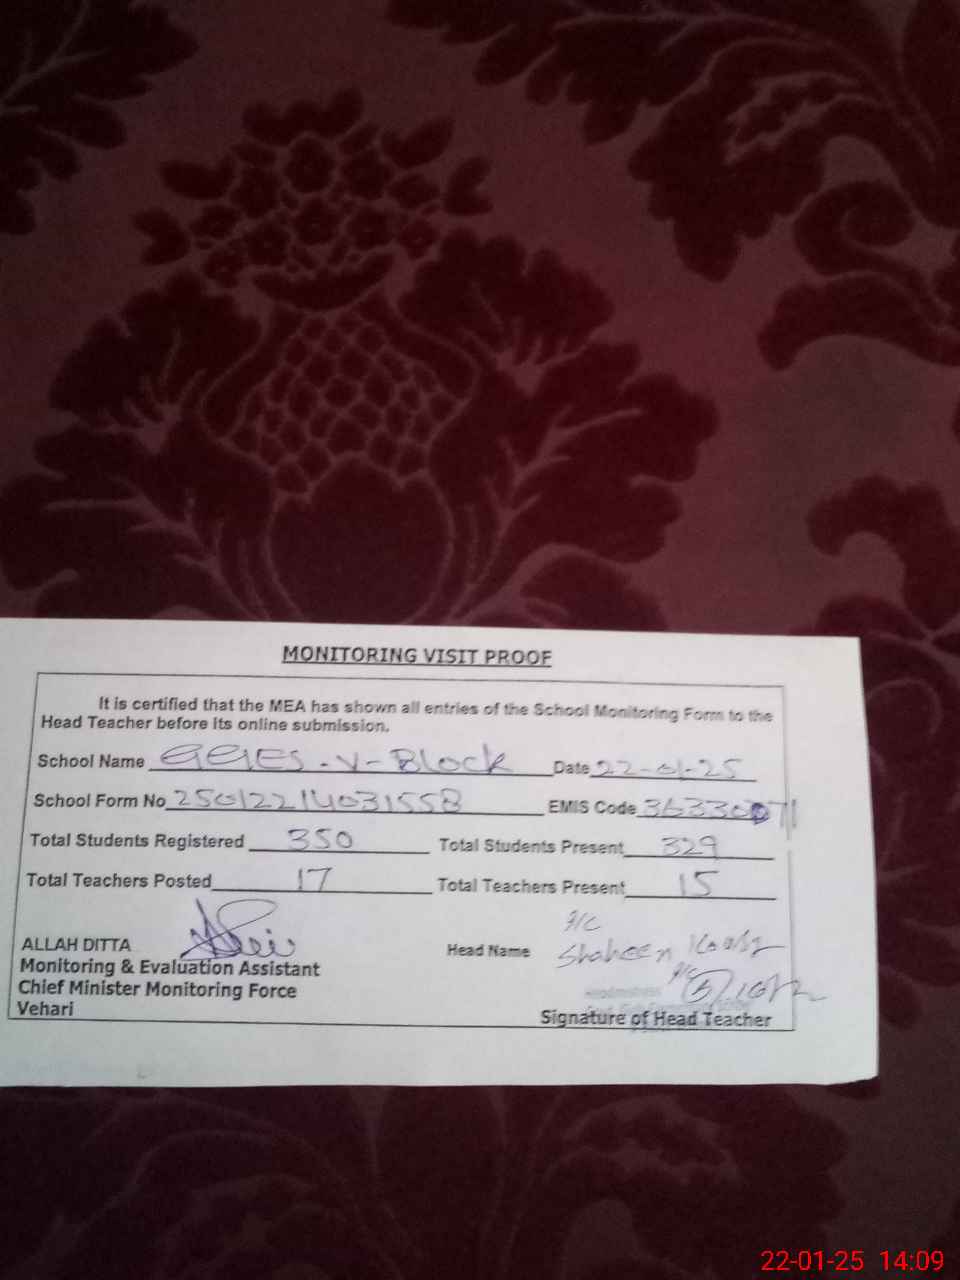 MONITORING VISIT PROOF
It is certified that the MEA has shown all entries of the School Monitoring Form to the
Head Teacher before its online submission.
School Name GGES-V-Block Date 22-01-25
School Form No 25012214031558 EMIS Code 36330071
Total Students Registered 350 Total Students Present 329
Total Teachers Posted 17 Total Teachers Present 15
I/C
ALLAH DITTA Head Name Shaheen
Monitoring & Evaluation Assistant
Chief Minister Monitoring Force
Vehari Signature of Head Teacher
22-01-25 14:09